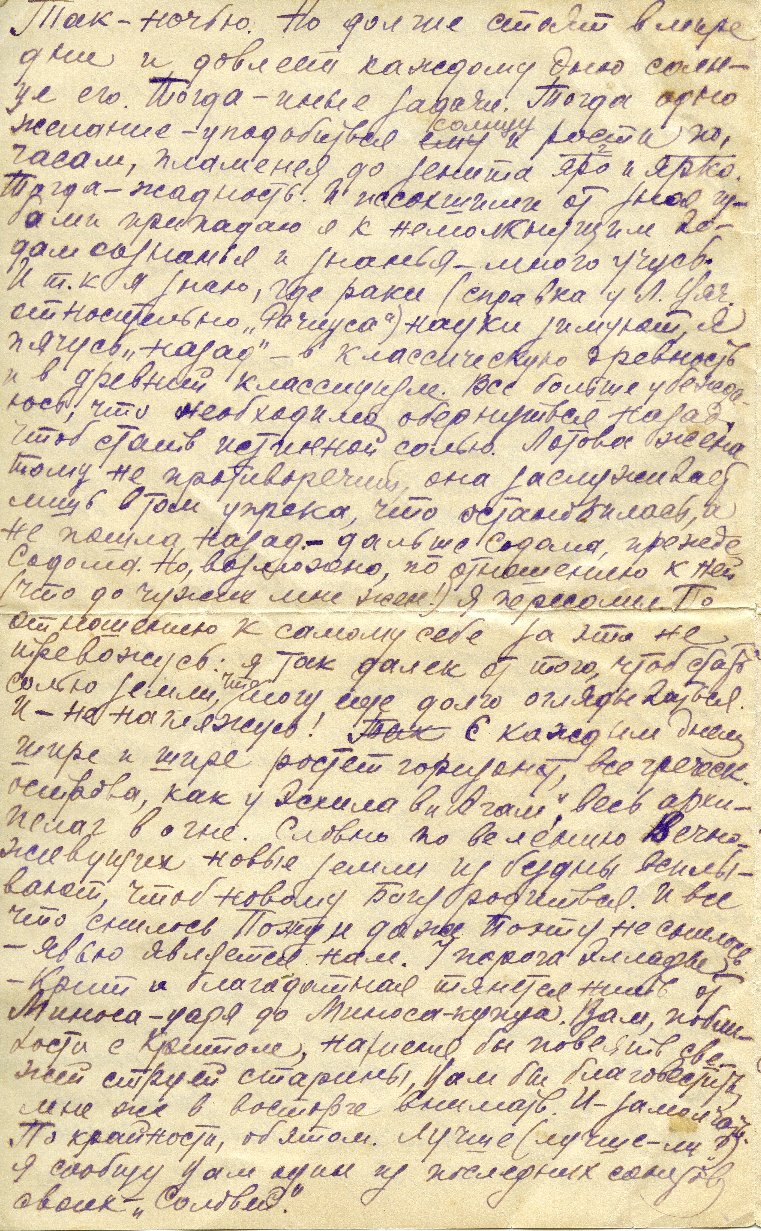 Так – ночью. Но дольше стоят в мире
дни и довлеет каждому дню солн-
це его. Тогда – иные задачи. Тогда одно
желание – уподобиться солнцу и рости по
часам, пламенея до зенита яро и ярко.
Тогда – жадность. И иссохшими от зноя гу-
бами припадаю я к немолкнущим во-
дам сознанья и знанья – много учусь.
И т.к. я знаю, где раки (справка у Л. Вяч.
относительно „Рачиуса“) науки зимуют, я
пячусь „назад“ – в классическую древность
и в древний классицизм. Все больше убежда-
юсь, что необходимо обернуться назад,
чтоб стать истинной солью. Лотова жена
тому не противоречит, она заслуживает
лишь в том упрека, что остановилась, а
не пошла назад – дальше Содома, прежде
Содома. Но, возможно, по отношению к ней
(что до чужих мне жен!) я пересолил. По
отношению к самому себе за это не
тревожусь: я так далек от того, чтоб стать
солью земли, что могу еще долго оглядываться.
И – не нагляжусь! С каждым днем
шире и шире ростет горизонт, все греческ.
острова, как у Эсхила весь архи-
пелаг в огне. Словно по велению Вечно-
живущих новые земли из бездны всплы-
вают, чтоб новому Богу родиться. И все
что снилось Поэту и даже Поэту не снилось
– явью является нам. У порога Эллады
– Крит и благодатная тянется нить от
Миноса-царя до Миноса-купца. Вам, в близ-
кости с Критом, надлежит бы повеять све-
жей струей старины, Вам бы благовестить
мне же в восторге внимать. И – замолчать.
По крайности, об этом. Лучше (лучше-ли?)
я сообщу Вам один из последних сонетов
своих – „Соловей“.